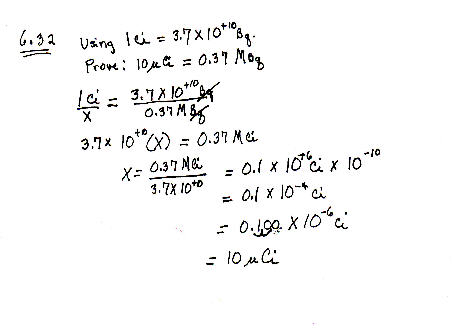 6.32 Using 1 Ci = 3.7 X 10^+10 Bq.
Prove: 10 μCi = 0.37 MBq
1 Ci / X = 3.7 X 10^+10 Bq / 0.37 M Bq
3.7 x 10^+10 (X) = 0.37 M Ci
X = 0.37 M Ci / 3.7 X 10^+10 = 0.1 x 10^+6 Ci x 10^-10
= 0.1 x 10^-4 Ci
= 0.100 X 10^-6 Ci
= 10 μ Ci